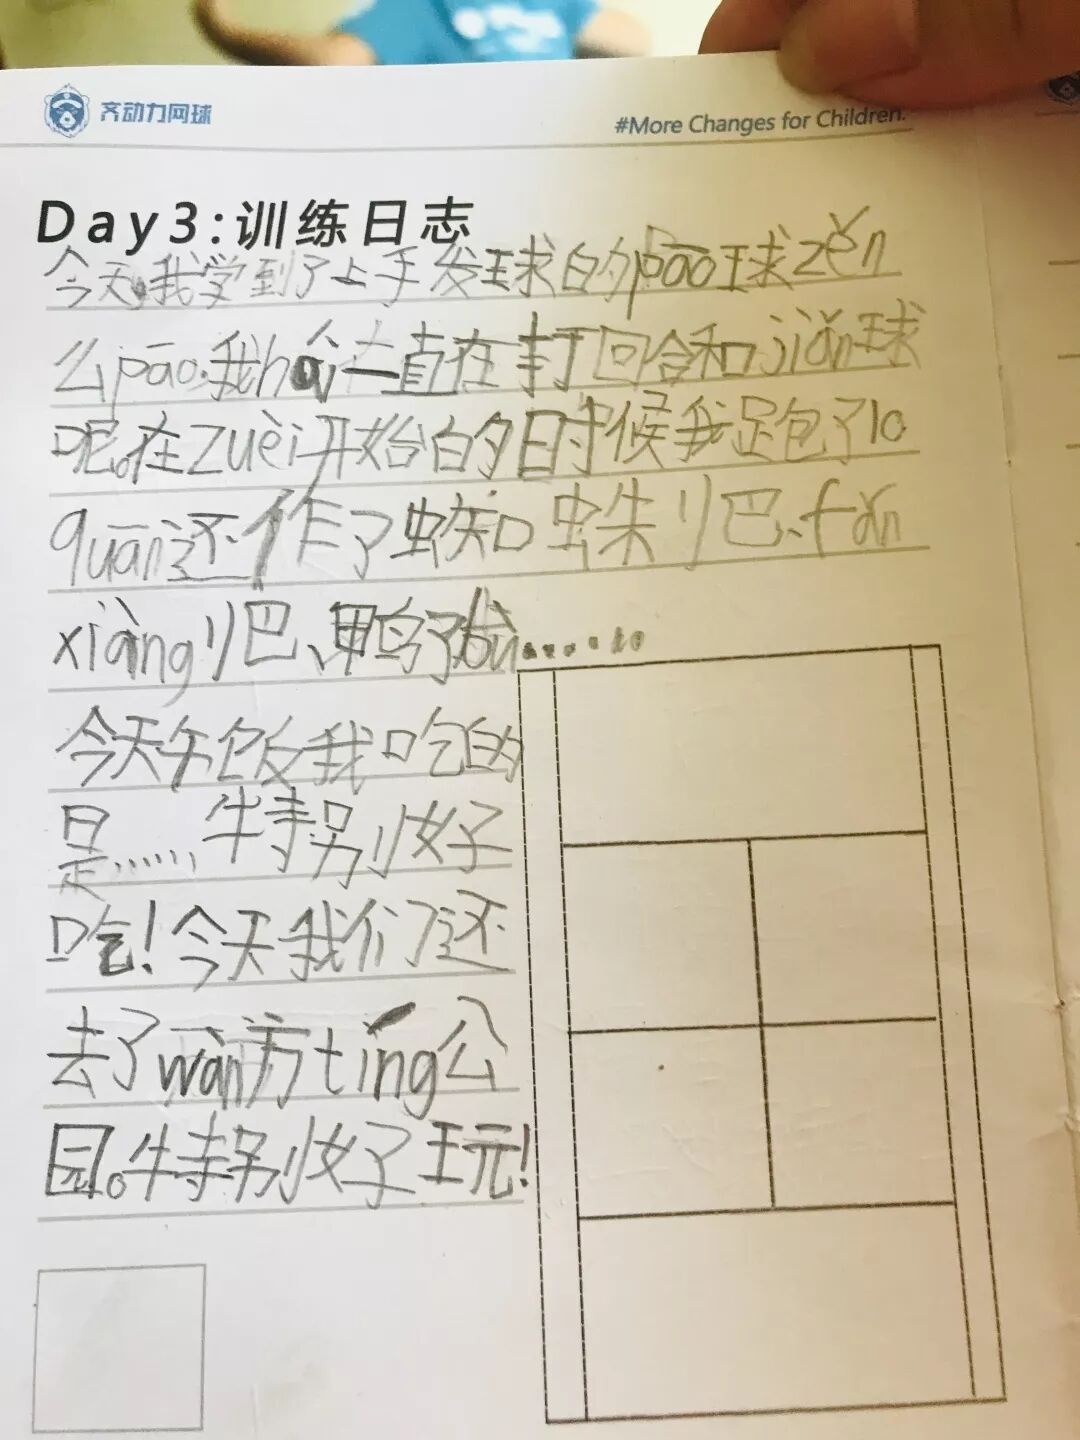 齐动力网球
#More Changes for Children.
Day3:训练日志
今天,我学到了上手发球的pāo球zěn
么pāo.我hái一直在打回合和jiǎn球
呢。在zuèi开始的时候我跑了10
quān还作了蜘蛛爬、fǎn
xiàng爬、鸭子bù......
今天午饭我吃的
是......牛特别好
吃!今天我们还
去了wàn方tíng公
园。特别好玩!